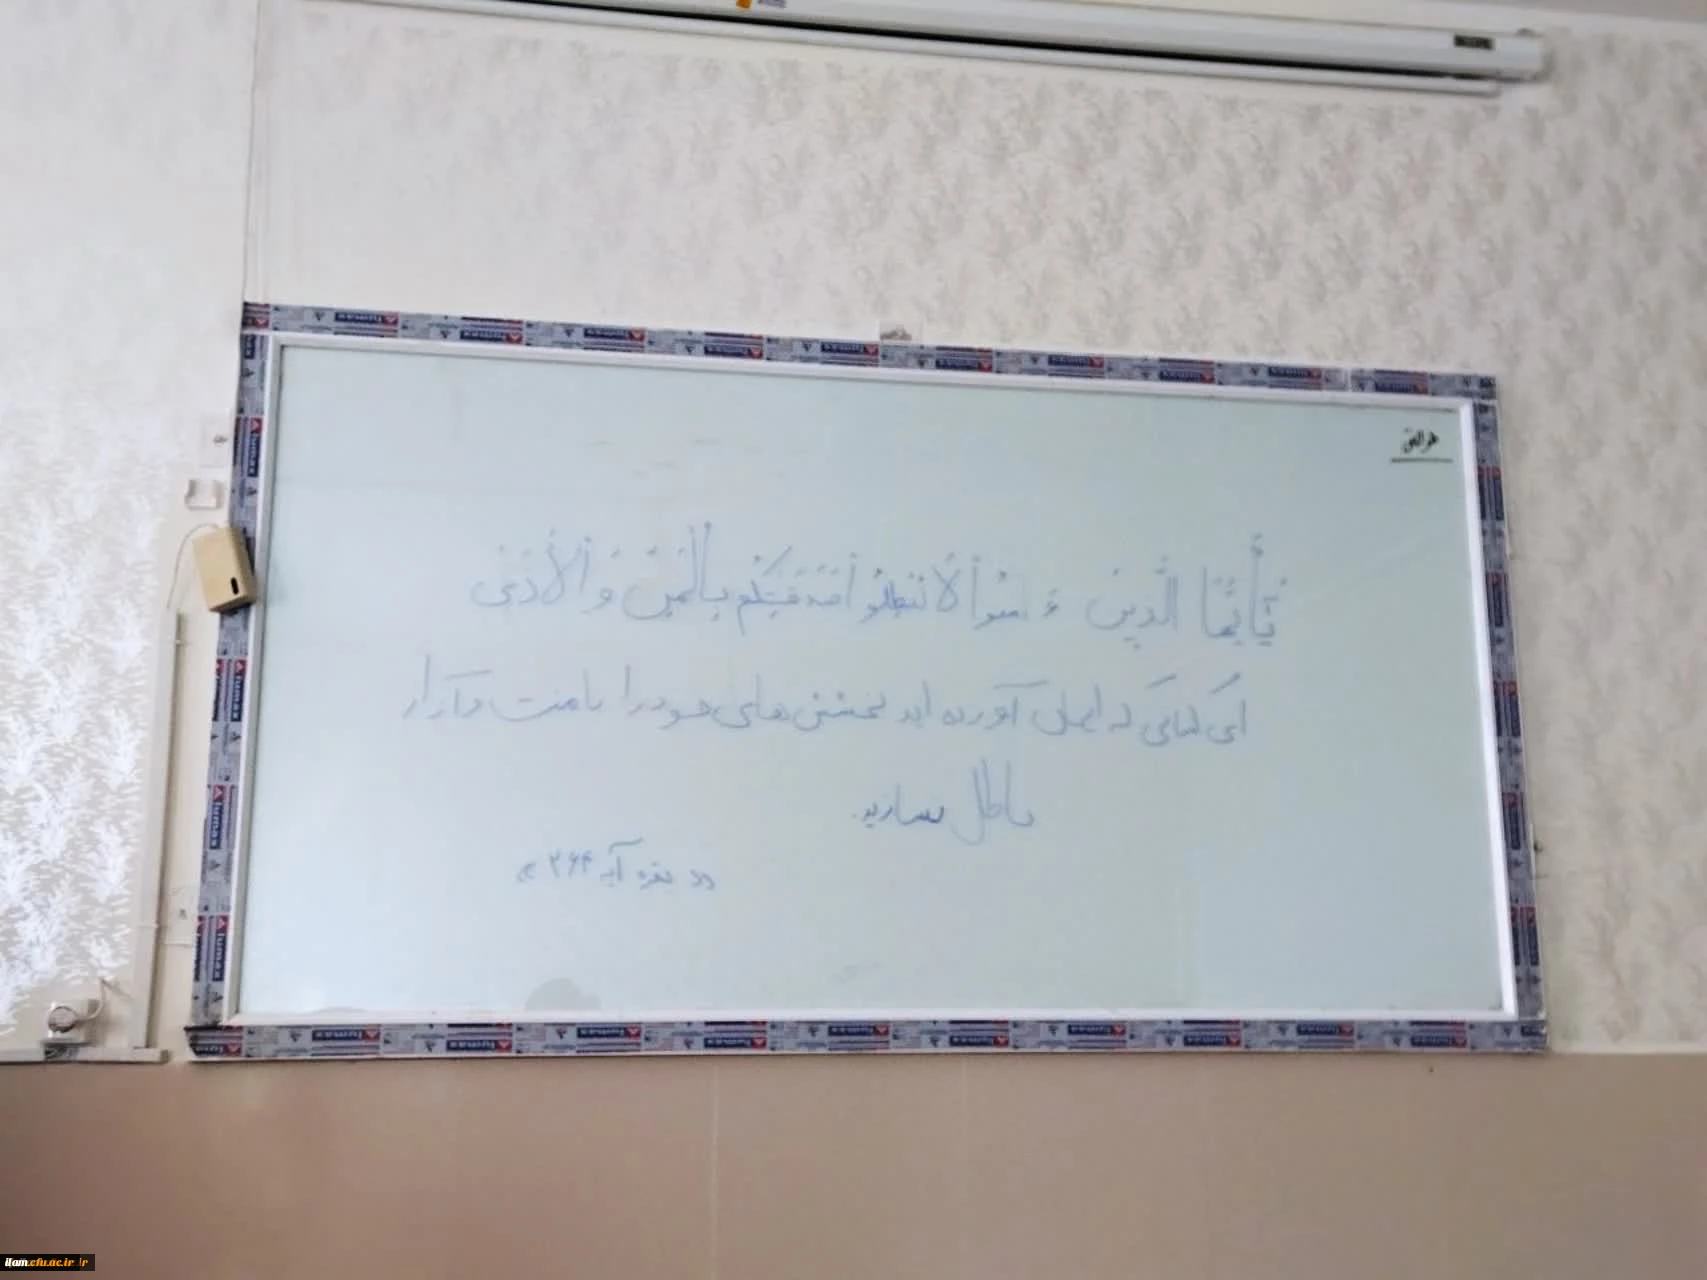 يَٰٓأَيُّهَا الَّذِينَ ءَامَنُوا لَا تُبْطِلُوا صَدَقَٰتِكُم بِالْمَنِّ وَالْأَذَىٰ
ای کسانی که ایمان آورده اید بخشش های خود را با منت و آزار
باطل نسازید.
«بقره آیه ۲۶۴»
ilam.cfu.ac.ir